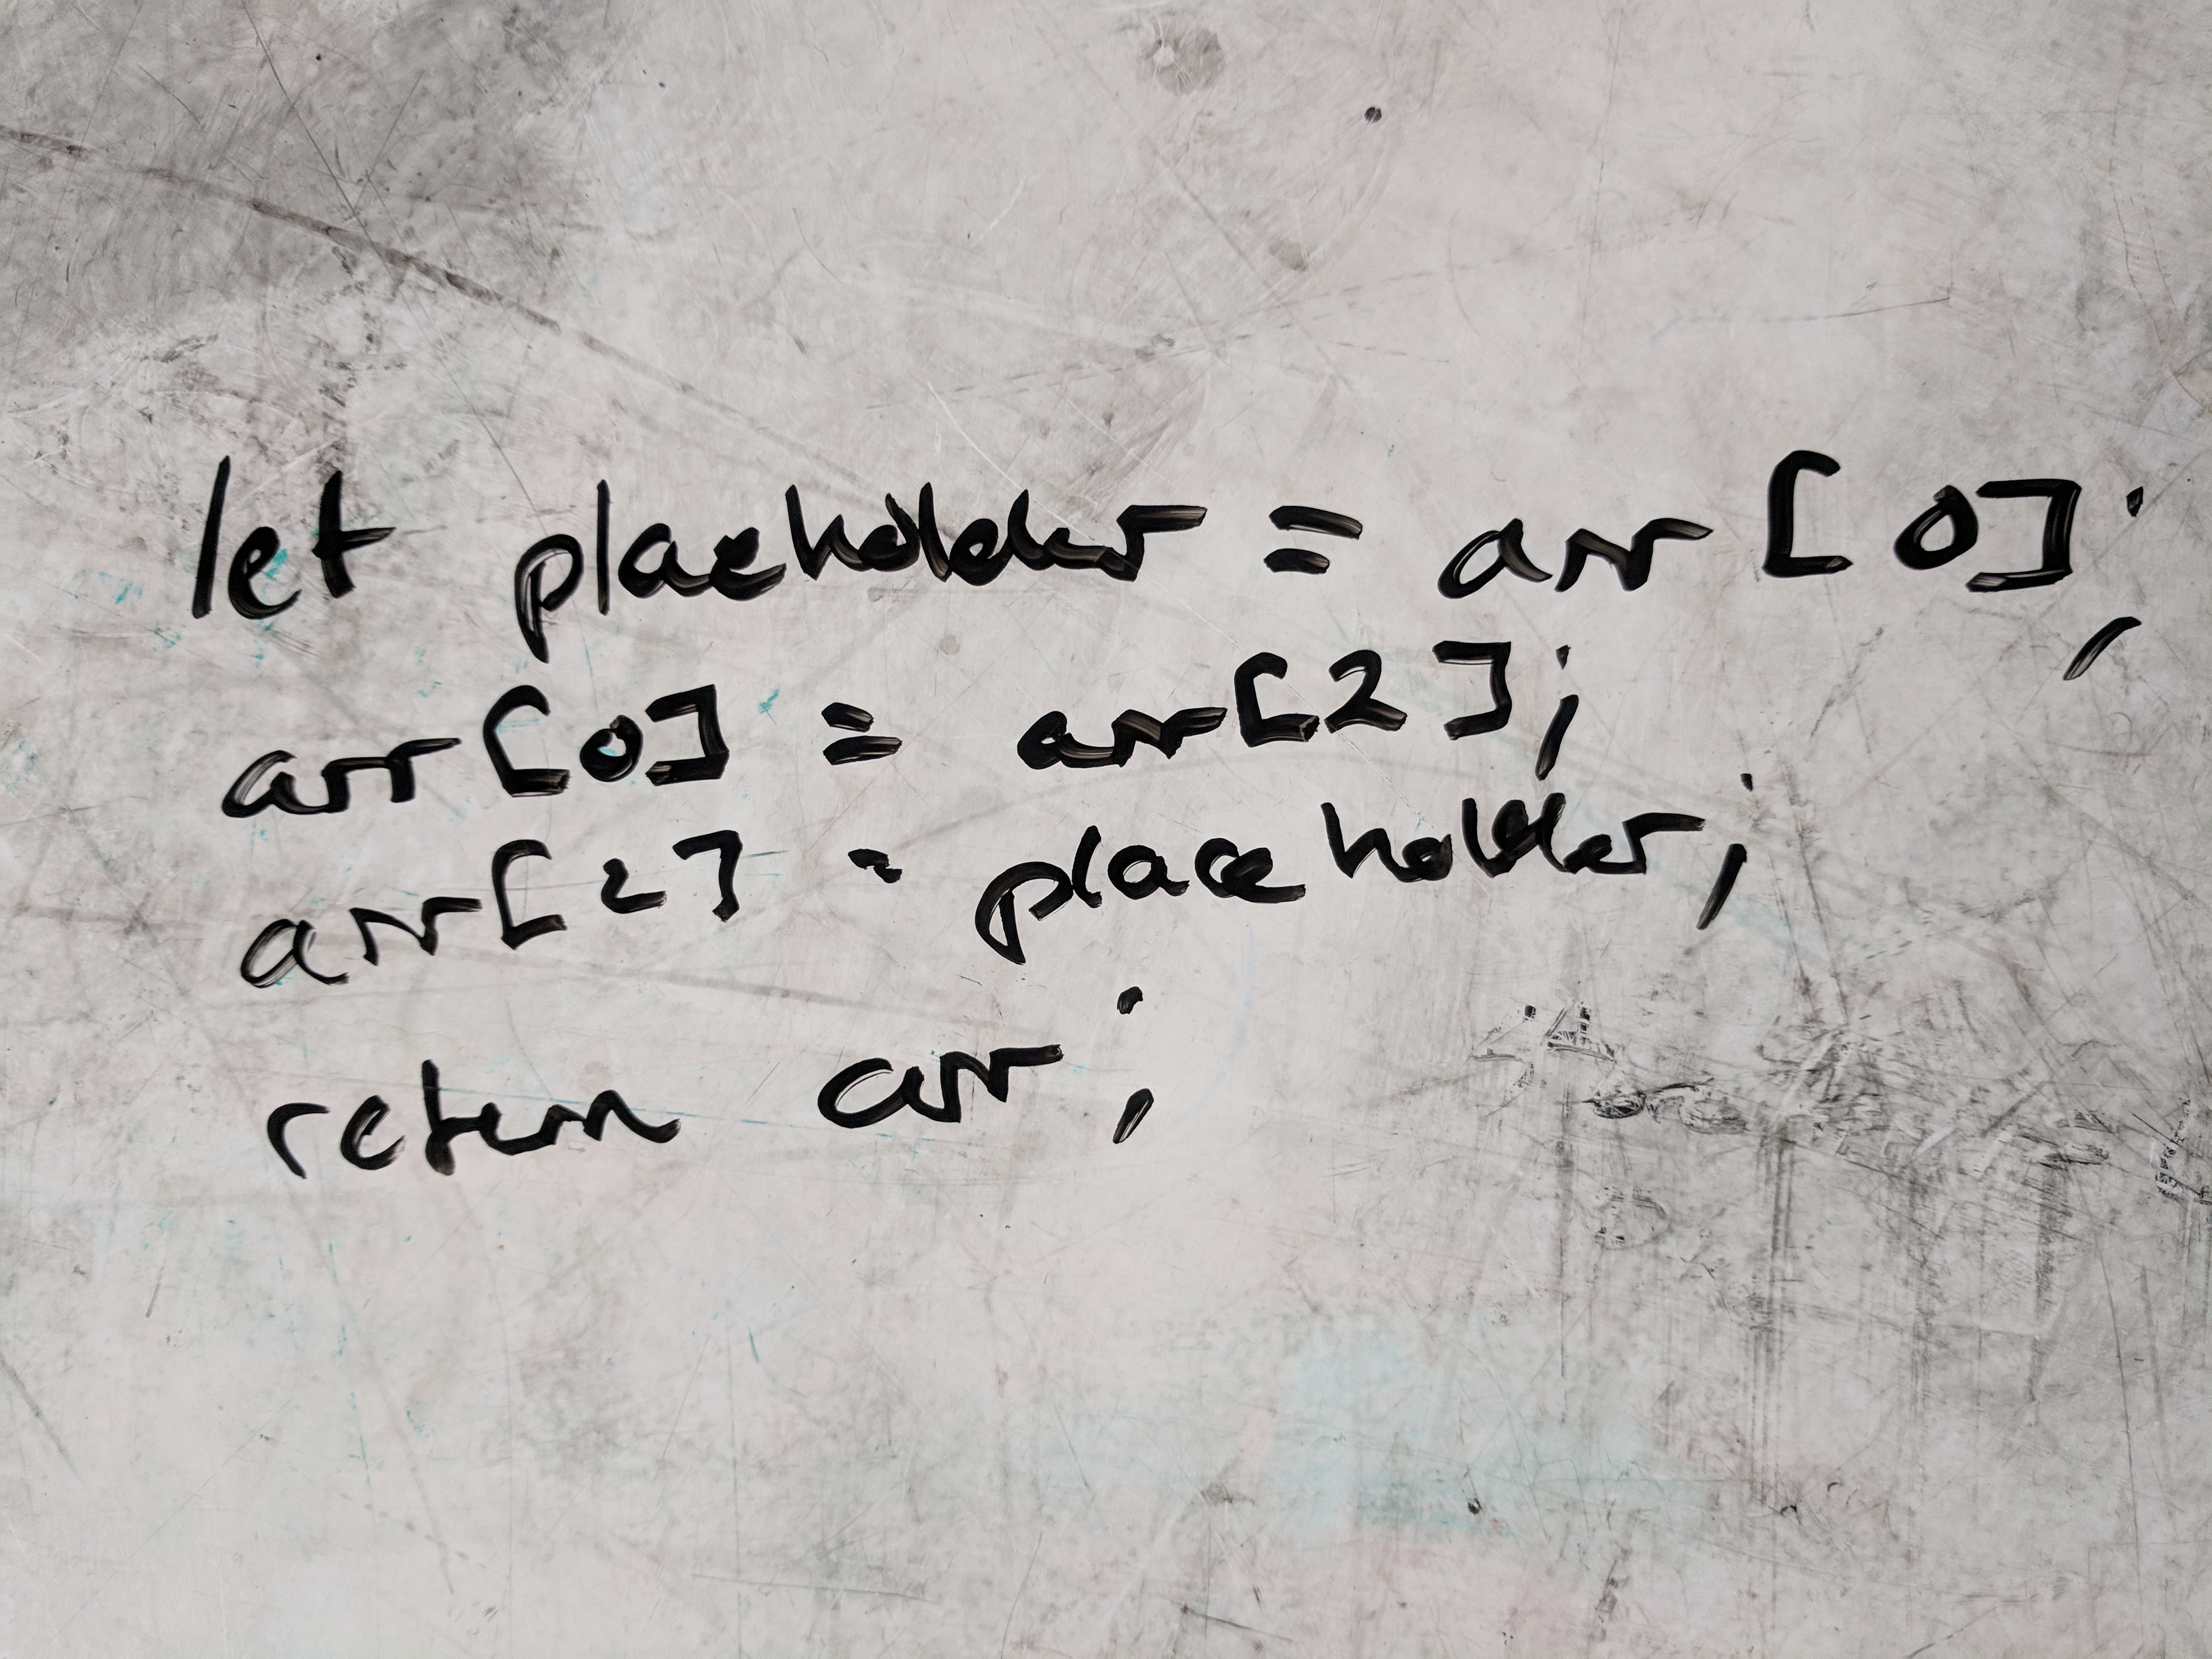 let placeholder = arr[0];
arr[0] = arr[2];
arr[2] = placeholder;
return arr;